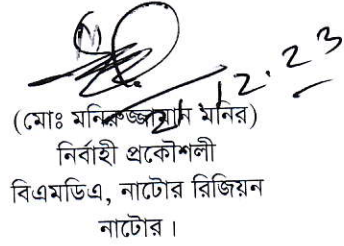 12.23
(মোঃ মনিরুজ্জামান মনির)
নির্বাহী প্রকৌশলী
বিএমডিএ, নাটোর রিজিয়ন
নাটোর।